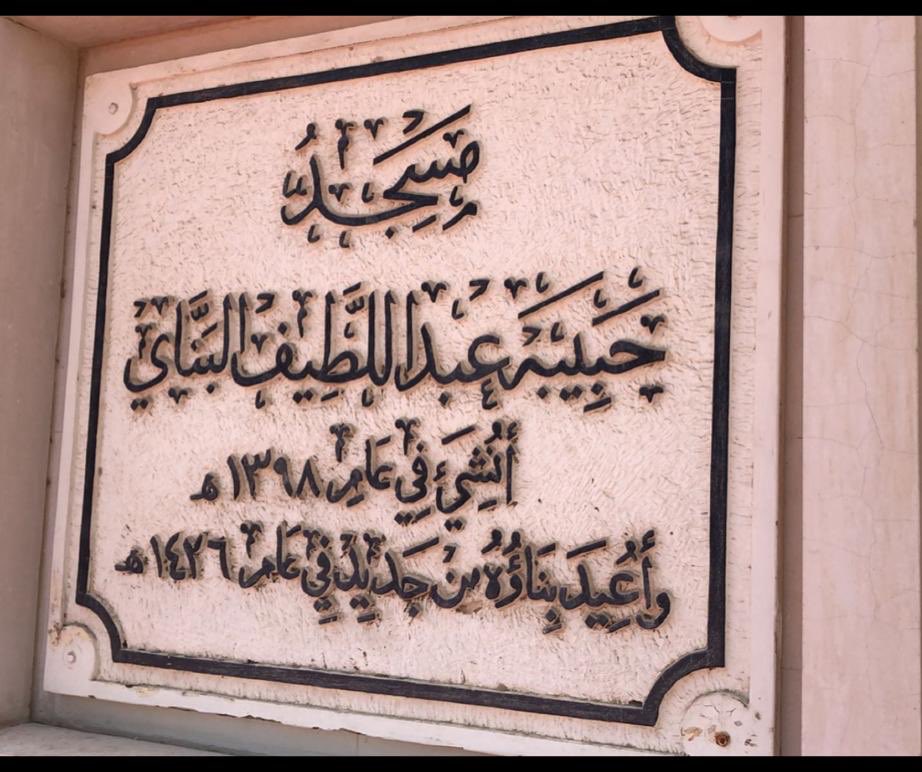 مَسْجِدُ
حَبِيبَه عَبْد اللَّطِيف البَنَّاي
أُنْشِئَ فِي عَامِ ١٣٩٨ هـ
وأُعِيدَ بِنَاؤُهُ مِنْ جَدِيدٍ فِي عَامِ ١٤٢٦ هـ